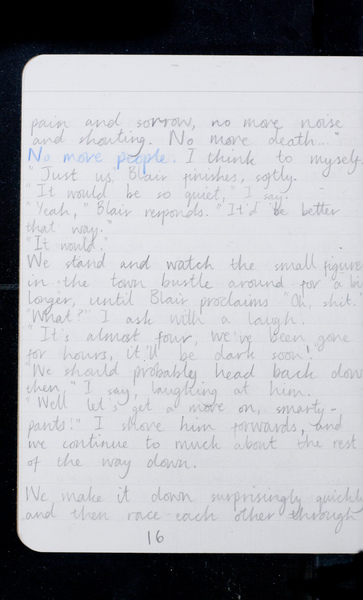 pain and sorrow, no more noise
and shouting. No more death..."
No more people. I think to myself.
"Just us" Blair finishes, softly.
"It would be so quiet," I say.
"Yeah," Blair responds. "It'd be better
that way."
"It would."
We stand and watch the small figures
in the town bustle around for a bit
longer, until Blair proclaims "Oh, shit."
"What?" I ask with a laugh.
"It's almost four, we've been gone
for hours, it'll be dark soon!"
"We should probably head back down
then," I say, laughing at him.
"Well let's get a move on, smarty-
pants!" I shove him forwards, and
we continue to much about the rest
of the way down.
We make it down surprisingly quickly
and then race each other through
16